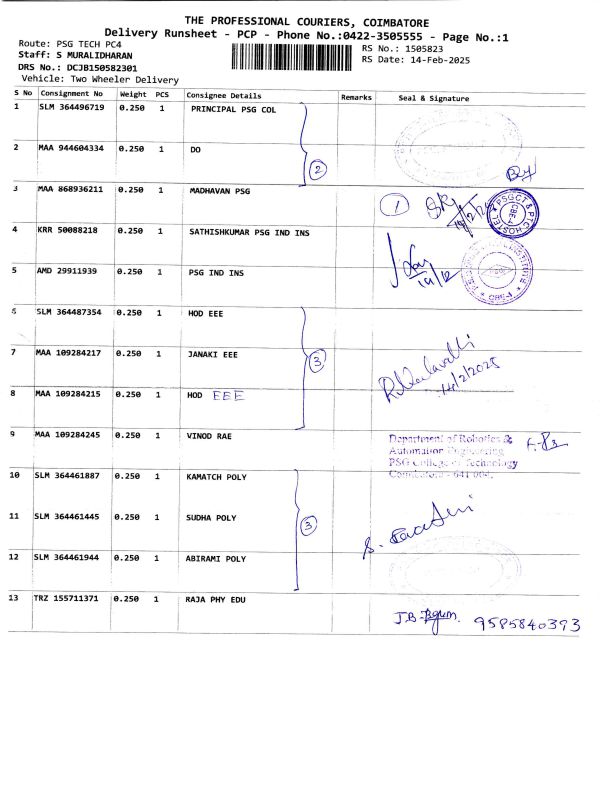 THE PROFESSIONAL COURIERS, COIMBATORE
Delivery Runsheet - PCP - Phone No.:0422-3505555 - Page No.:1
Route: PSG TECH PC4
RS No.: 1505823
Staff: S MURALIDHARAN
RS Date: 14-Feb-2025
DRS No.: DCJB150582301
Vehicle: Two Wheeler Delivery
S No Consignment No Weight PCS Consignee Details Remarks Seal & Signature
1 SLM 364496719 0.250 1 PRINCIPAL PSG COL
2 MAA 944604334 0.250 1 DO
2
3 MAA 868936211 0.250 1 MADHAVAN PSG
1
PSGCT & PTC HOSTEL CBE-4
4 KRR 50088218 0.250 1 SATHISHKUMAR PSG IND INS
5 AMD 29911939 0.250 1 PSG IND INS
CBE-4
6 SLM 364487354 0.250 1 HOD EEE
7 MAA 109284217 0.250 1 JANAKI EEE
3
14/2/2025
8 MAA 109284215 0.250 1 HOD EEE
9 MAA 109284245 0.250 1 VINOD RAE
Department of Robotics &
Automation Engineering
PSG College of Technology
Coimbatore - 641 004.
10 SLM 364461887 0.250 1 KAMATCH POLY
11 SLM 364461445 0.250 1 SUDHA POLY
3
12 SLM 364461944 0.250 1 ABIRAMI POLY
13 TRZ 155711371 0.250 1 RAJA PHY EDU
J.B. Begum. 9585840393